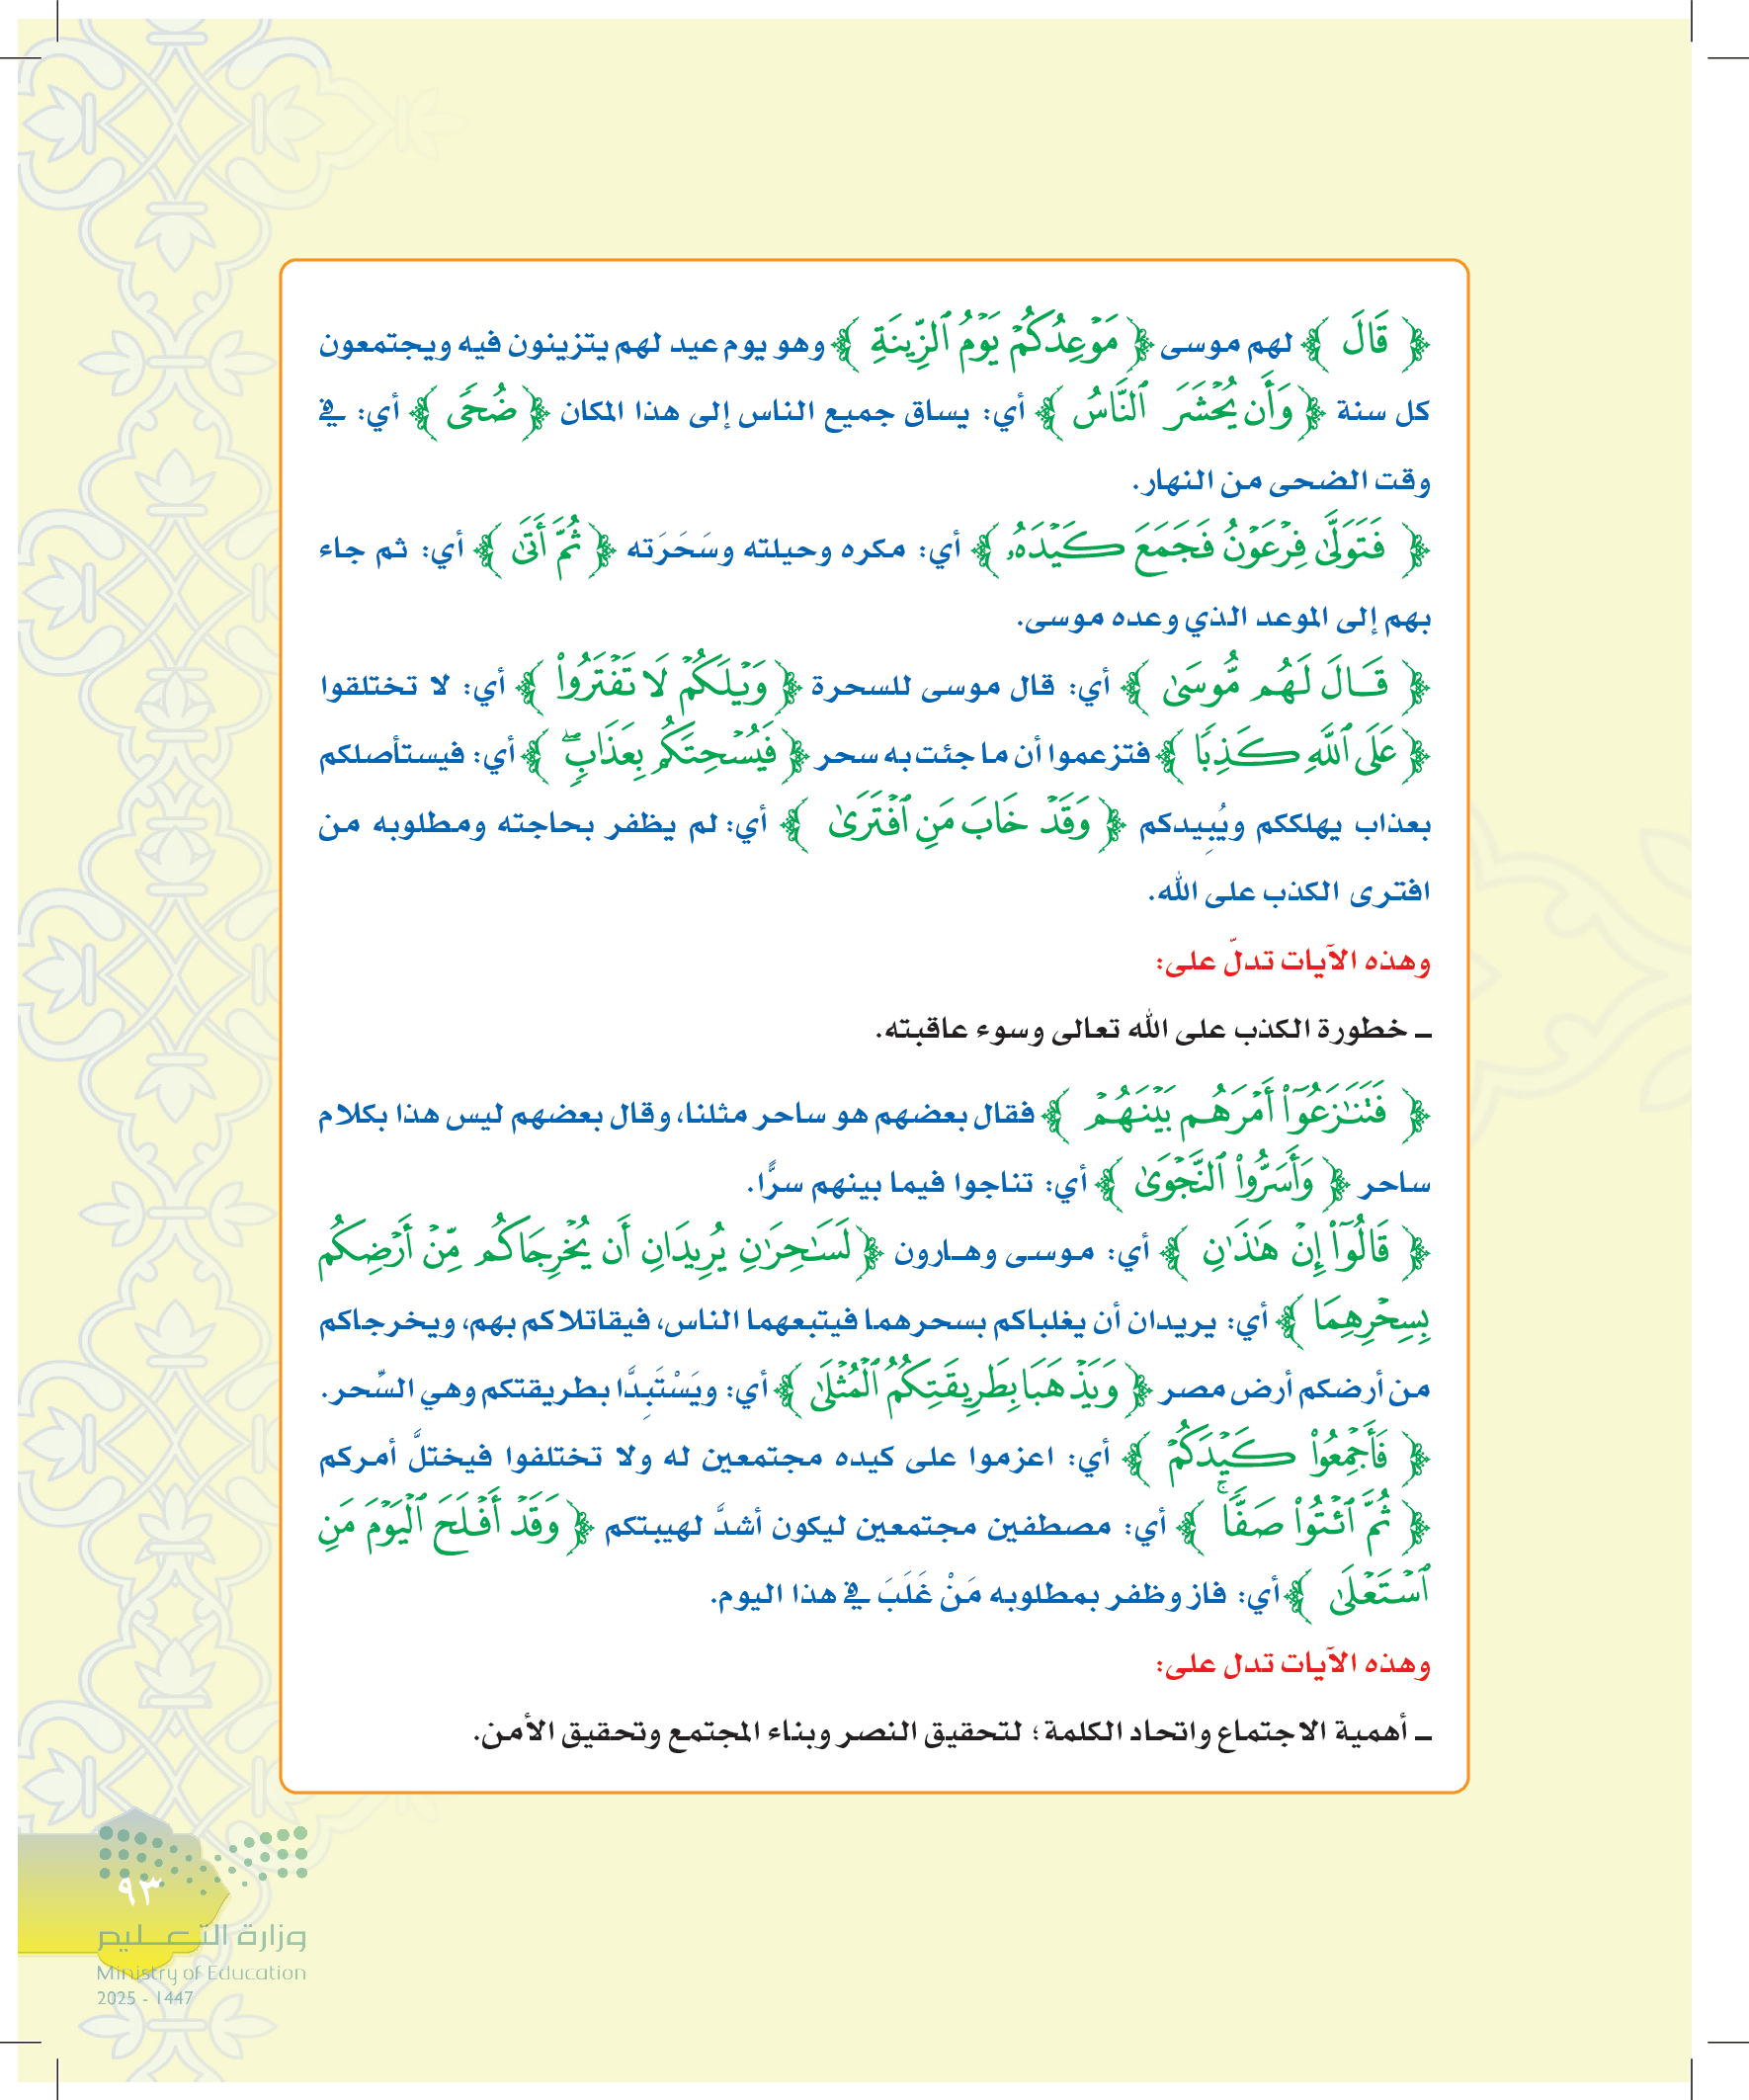 ﴿ قَالَ ﴾ لهم موسى ﴿ مَوۡعِدُكُمۡ يَوۡمُ ٱلزِّينَةِ ﴾ وهو يوم عيد لهم يتزينون فيه ويجتمعون
كل سنة ﴿ وَأَن يُحۡشَرَ ٱلنَّاسُ ﴾ أي: يساق جميع الناس إلى هذا المكان ﴿ ضُحٗى ﴾ أي: في
وقت الضحى من النهار.
﴿ فَتَوَلَّىٰ فِرۡعَوۡنُ فَجَمَعَ كَيۡدَهُۥ ﴾ أي: مكره وحيلته وسَحَرَته ﴿ ثُمَّ أَتَىٰ ﴾ أي: ثم جاء
بهم إلى الموعد الذي وعده موسى.
﴿ قَالَ لَهُم مُّوسَىٰ ﴾ أي: قال موسى للسحرة ﴿ وَيۡلَكُمۡ لَا تَفۡتَرُواْ ﴾ أي: لا تختلقوا
﴿ عَلَى ٱللَّهِ كَذِبٗا ﴾ فتزعموا أن ما جئت به سحر ﴿ فَيُسۡحِتَكُم بِعَذَابٖۖ ﴾ أي: فيستأصلكم
بعذاب يهلككم ويُبِيدكم ﴿ وَقَدۡ خَابَ مَنِ ٱفۡتَرَىٰ ﴾ أي: لم يظفر بحاجته ومطلوبه من
افترى الكذب على الله.
وهذه الآيات تدلّ على:
ـ خطورة الكذب على الله تعالى وسوء عاقبته.
﴿ فَتَنَٰزَعُوٓاْ أَمۡرَهُم بَيۡنَهُمۡ ﴾ فقال بعضهم هو ساحر مثلنا، وقال بعضهم ليس هذا بكلام
ساحر ﴿ وَأَسَرُّواْ ٱلنَّجۡوَىٰ ﴾ أي: تناجوا فيما بينهم سرًّا.
﴿ قَالُوٓاْ إِنۡ هَٰذَٰنِ ﴾ أي: موسى وهارون ﴿ لَسَٰحِرَٰنِ يُرِيدَانِ أَن يُخۡرِجَاكُم مِّنۡ أَرۡضِكُم
بِسِحۡرِهِمَا ﴾ أي: يريدان أن يغلباكم بسحرهما فيتبعهما الناس، فيقاتلاكم بهم، ويخرجاكم
من أرضكم أرض مصر ﴿ وَيَذۡهَبَا بِطَرِيقَتِكُمُ ٱلۡمُثۡلَىٰ ﴾ أي: ويَسْتَبِدَّا بطريقتكم وهي السِّحر.
﴿ فَأَجۡمِعُواْ كَيۡدَكُمۡ ﴾ أي: اعزموا على كيده مجتمعين له ولا تختلفوا فيختلَّ أمركم
﴿ ثُمَّ ٱئۡتُواْ صَفّٗاۚ ﴾ أي: مصطفين مجتمعين ليكون أشدَّ لهيبتكم ﴿ وَقَدۡ أَفۡلَحَ ٱلۡيَوۡمَ مَنِ
ٱسۡتَعۡلَىٰ ﴾ أي: فاز وظفر بمطلوبه مَنْ غَلَبَ في هذا اليوم.
وهذه الآيات تدل على:
ـ أهمية الاجتماع واتحاد الكلمة؛ لتحقيق النصر وبناء المجتمع وتحقيق الأمن.
٩٣
وزارة التعليم
Ministry of Education
2025 - 1447